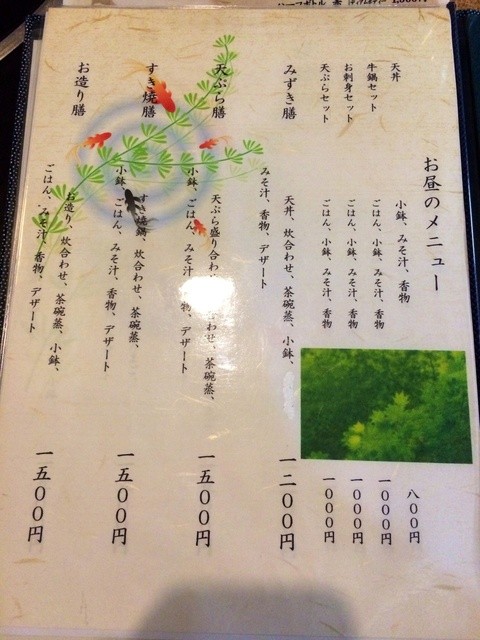 お昼のメニュー
天丼
小鉢、みそ汁、香物
八〇〇円
牛鍋セット
ごはん、小鉢、みそ汁、香物
一〇〇〇円
お刺身セット
ごはん、小鉢、みそ汁、香物
一〇〇〇円
天ぷらセット
ごはん、小鉢、みそ汁、香物
一〇〇〇円
みずき膳
天丼、炊合わせ、茶碗蒸、小鉢、
みそ汁、香物、デザート
一二〇〇円
天ぷら膳
天ぷら盛り合わ わせ、茶碗蒸、
小鉢、ごはん、みそ汁、香物、デザート
一五〇〇円
すき焼膳
すき焼鍋、炊合わせ、茶碗蒸、
小鉢、ごはん、みそ汁、香物、デザート
一五〇〇円
お造り膳
お造り、炊合わせ、茶碗蒸、小鉢、
ごはん、みそ汁、香物、デザート
一五〇〇円